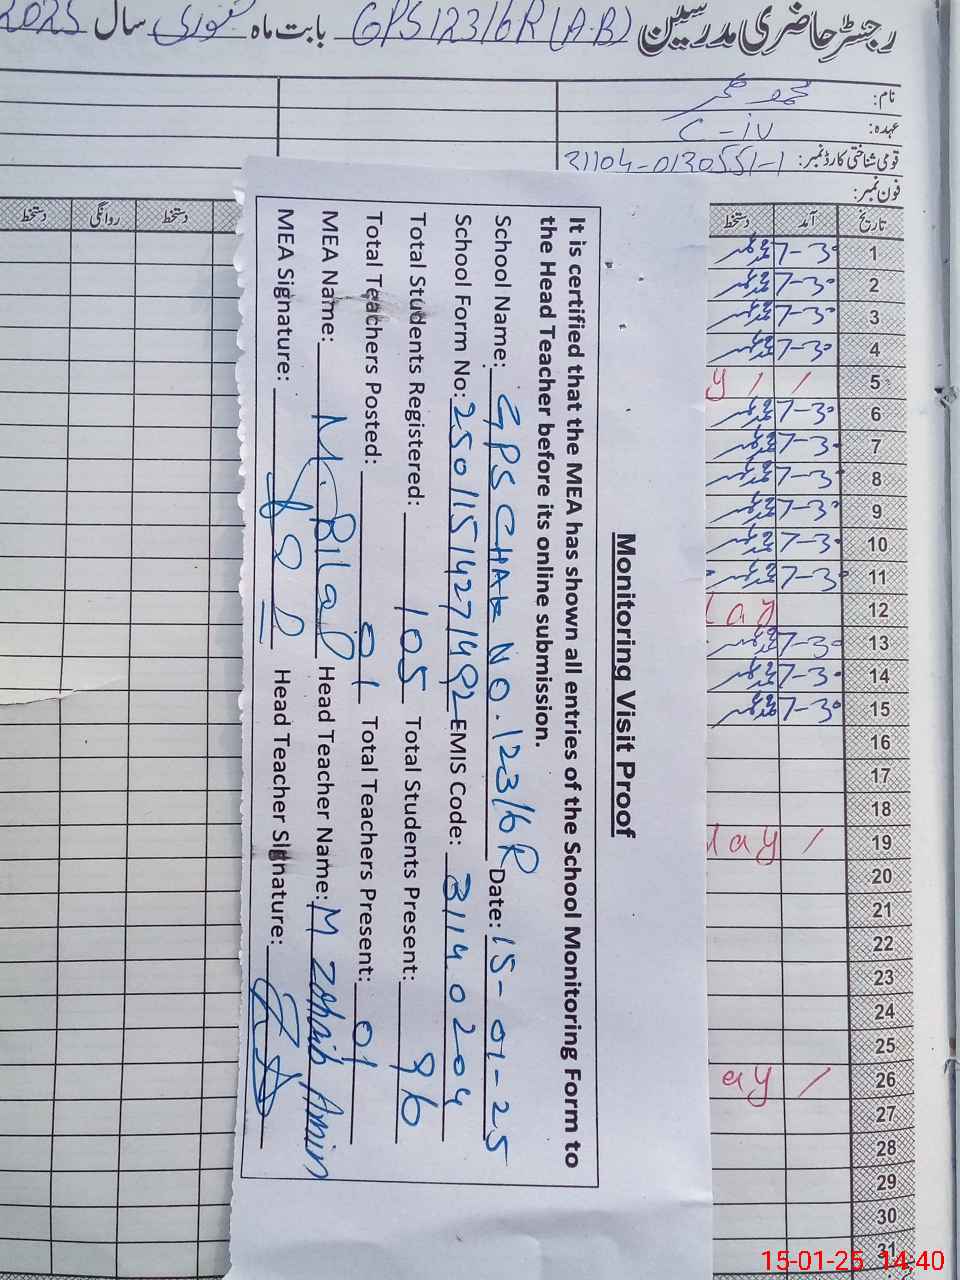 رجسٹر حاضری مدرسین GPS 123/6R (A.B) بابت ماہ جنوری سال 2025
نام:
عہدہ: C-iv
قومی شناختی کارڈ نمبر: 31104-0130551-1
فون نمبر:
تاریخ آمد دستخط دستخط روانگی دستخط
1 7-30
2 7-30
3 7-30
4 7-30
5
6 7-30
7 7-30
8 7-30
9 7-30
10 7-30
11 7-30
12 day
13 7-30
14 7-30
15 7-30
16
17
18
19 day
20
21
22
23
24
25
26 ay
27
28
29
30
31
Monitoring Visit Proof
It is certified that the MEA has shown all entries of the School Monitoring Form to
the Head Teacher before its online submission.
School Name: GPS CHAK NO. 123/6R Date: 15-01-25
School Form No: 250115142711492 EMIS Code: 31140204
Total Students Registered: 105 Total Students Present: 96
Total Teachers Posted: 01 Total Teachers Present: 01
MEA Name: M. Bilal Head Teacher Name: M Zohaib Amin
MEA Signature: Head Teacher Signature:
15-01-25 14:40